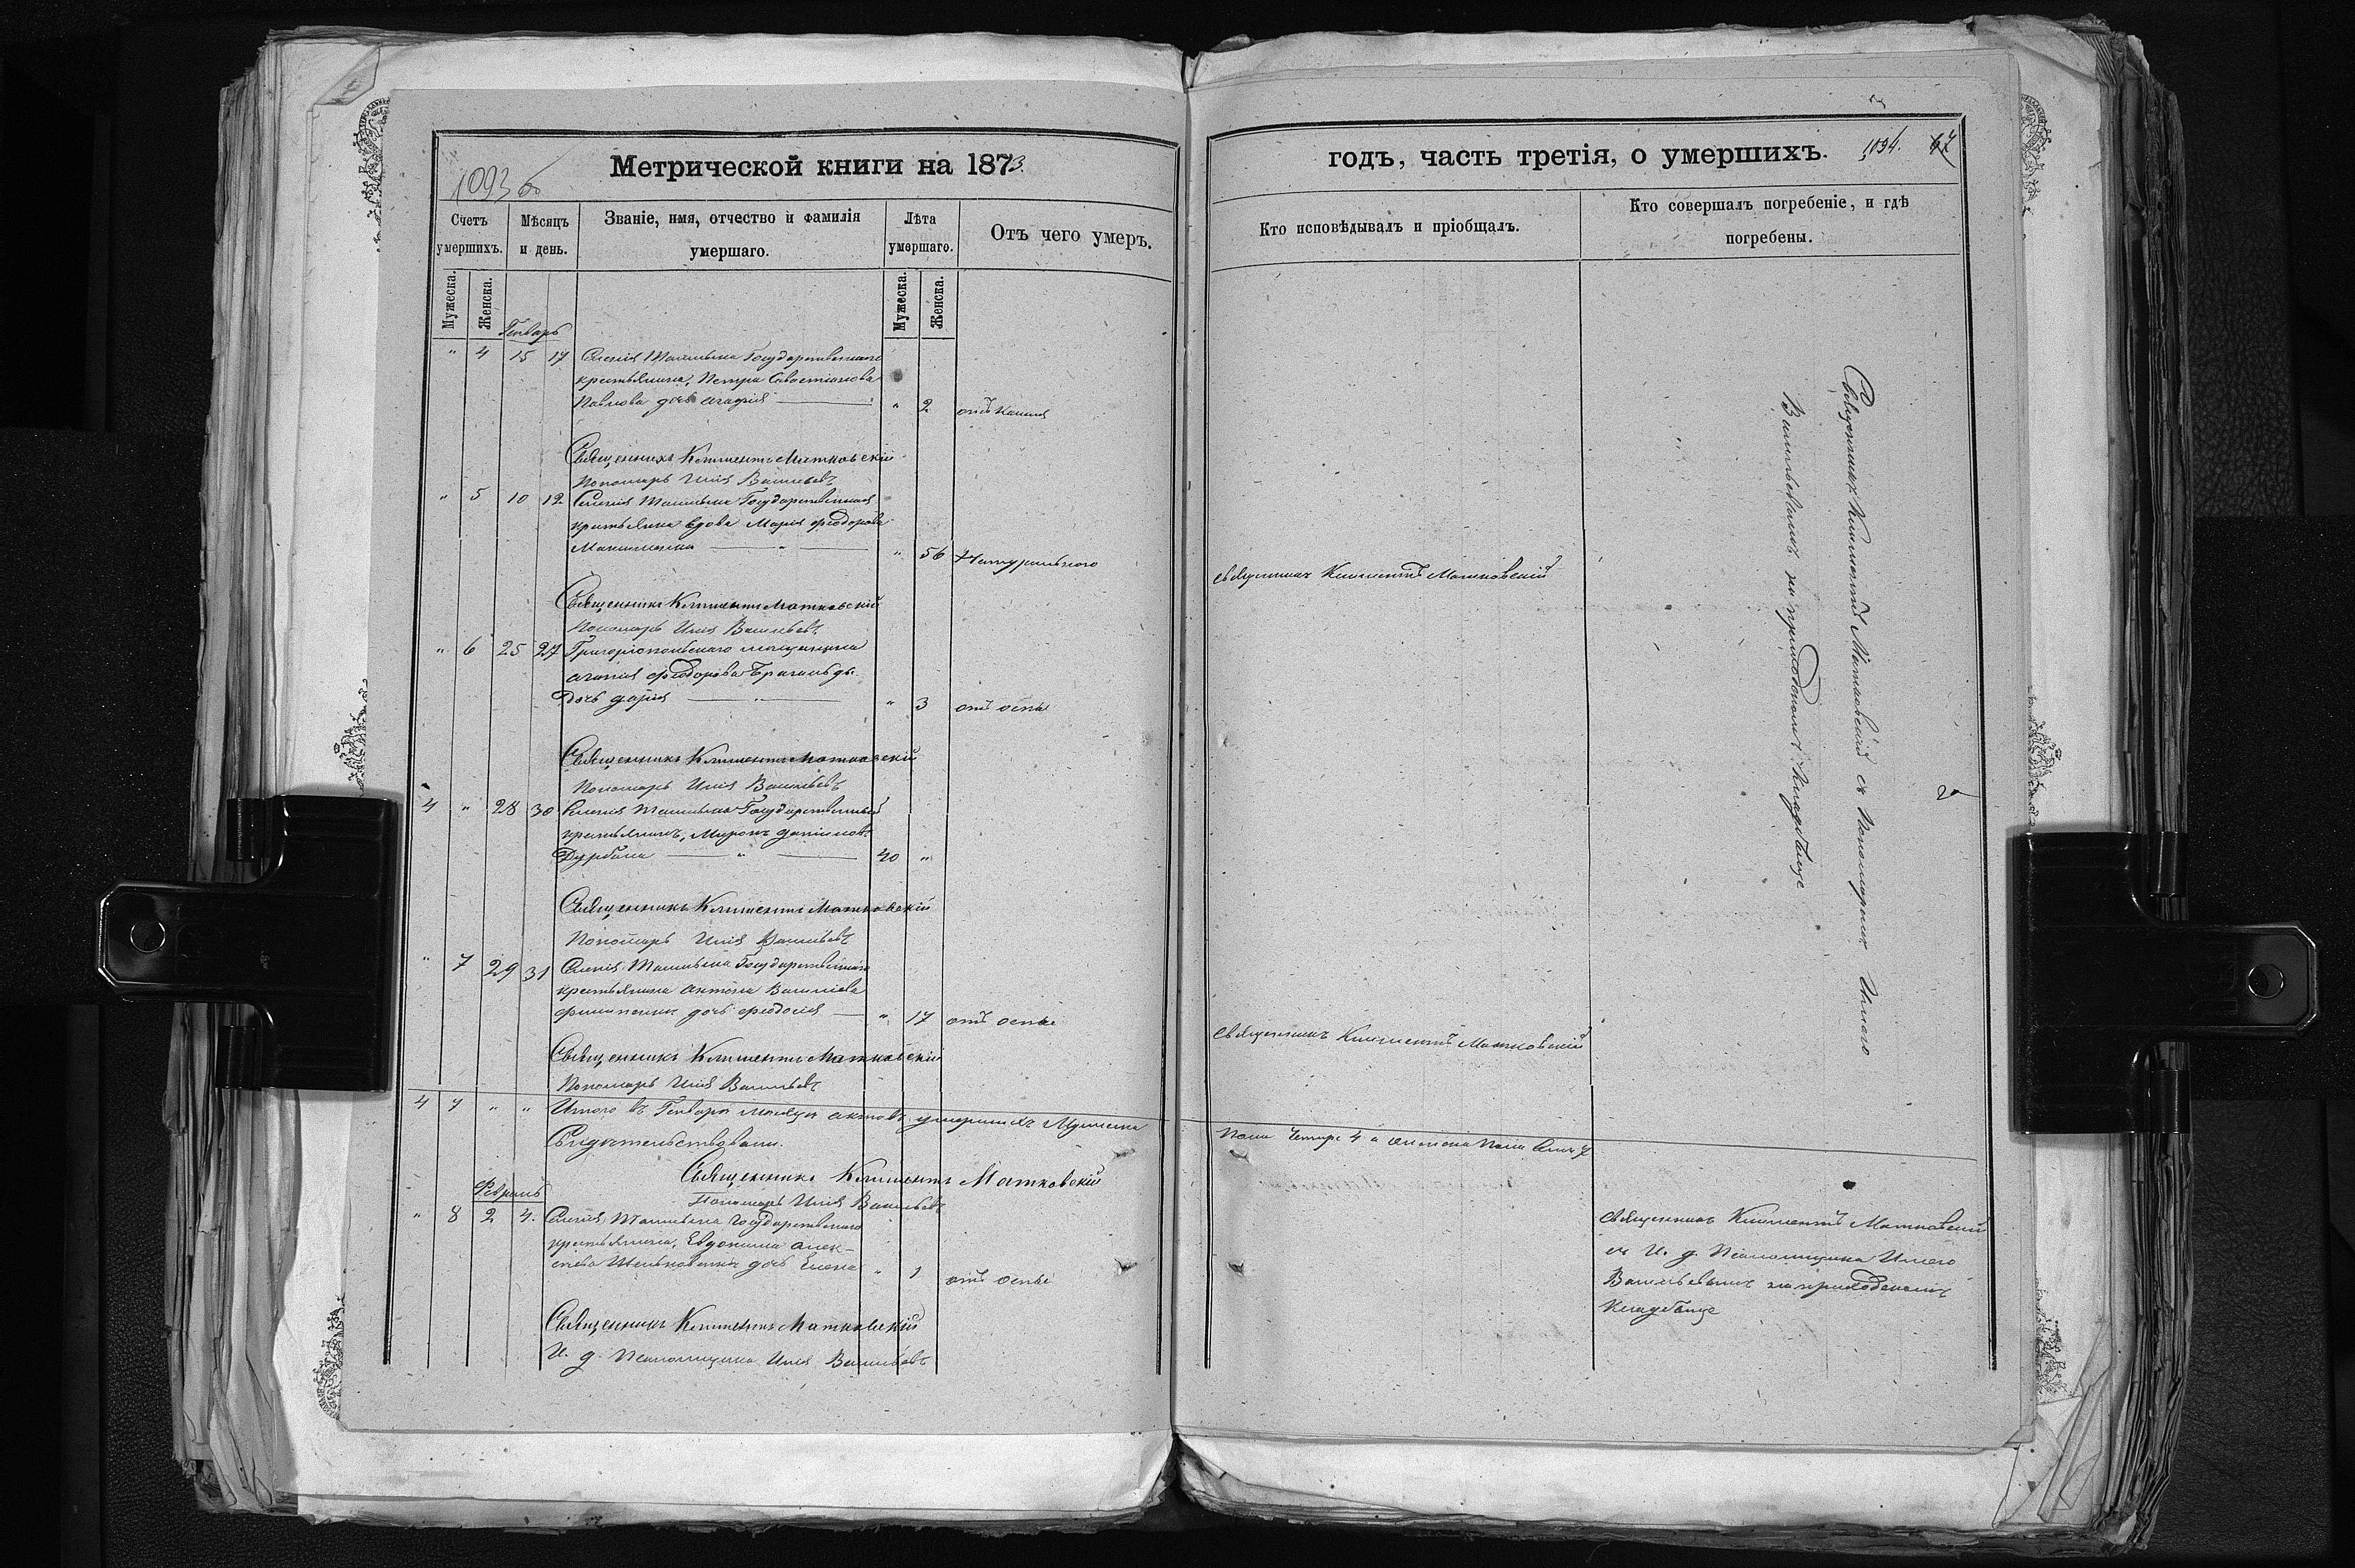 Метрической книги на 1873.
1093 об
Счетъ умершихъ.
Мѣсяцъ и день.
Званіе, имя, отчество и фамилія умершаго.
Лѣта умершаго.
Отъ чего умеръ.
Мужеска.
Женска.
Мужеска.
Женска.
Генваръ
" 4 15 17 Селенія Ташлыка Государственнаго
крестьянина, Петра Савастіанова
Павлова дочь Агафія — " 2 отъ кашля
Священникъ Климентъ Матковскій
Пономарь Илія Васильевъ
" 5 10 12 Селенія Ташлыка Государственная
крестьянка вдова Марія Ѳеодорова
" 56 Натурального
Священникъ Климентъ Матковскій
Пономарь Илія Васильевъ
" 6 25 27 Григоріопольскаго мещанина
Ѳеодорова
Дочь Дарія — " — " 3 отъ оспы
Священникъ Климентъ Матковскій
Пономарь Илія Васильевъ
4 " 28 30 Селенія Ташлыка Государственный
крестьянинъ, Миронъ Даніиловъ
Дурбала — " — 40 "
Священникъ Климентъ Матковскій
Пономарь Илія Васильевъ
" 7 29 31 Селенія Ташлыка Государственнаго
крестьянина Антона Василіева
дочь Ѳеодосія — " 17 отъ оспы
Священникъ Климентъ Матковскій
Пономарь Илія Васильевъ
4 7 " " Итого въ Генварѣ месяцѣ актовъ умершихъ Мужеска
Свидѣтельствовали.
Священникъ Климентъ Матковскій
Пономарь Илія Васильевъ
Февраль
" 8 2 4. Селенія Ташлыка Государственнаго
крестьянина, Евдокима Алек-
сѣева дочь Елена " 1 отъ оспы
Священникъ Климентъ Матковскій
И. д. Псаломщика Илія Васильевъ
годъ, часть третія, о умершихъ.
1094. 67
Кто исповѣдывалъ и пріобщалъ.
Кто совершалъ погребеніе, и гдѣ погребены.
Священникъ Климентъ Матковскій
Священникъ Климентъ Матковскій
Священникъ Климентъ Матковскій съ Пономаремъ Иліею
Васильевымъ на приходскомъ кладбище
пола четыре 4 а женска пола семь 7
Священникъ Климентъ Матковскій
съ И. д. Псаломщика Иліею
Васильевымъ на приходскомъ
кладбище